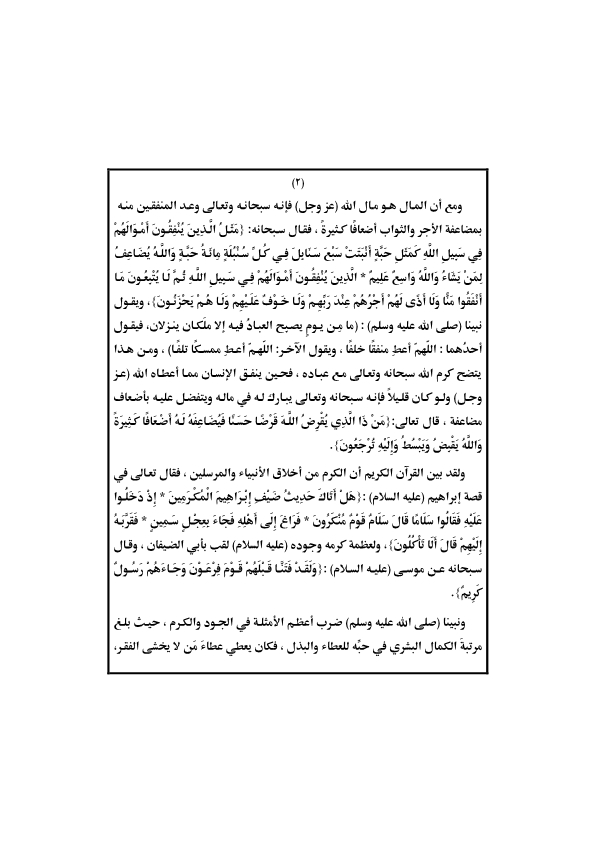 (٢)
ومع أن المال هو مال الله (عز وجل) فإنه سبحانه وتعالى وعد المنفقين منه
بمضاعفة الأجر والثواب أضعافًا كثيرةً ، فقال سبحانه: {مَثَلُ الَّذِينَ يُنْفِقُونَ أَمْوَالَهُمْ
فِي سَبِيلِ اللَّهِ كَمَثَلِ حَبَّةٍ أَنْبَتَتْ سَبْعَ سَنَابِلَ فِي كُلِّ سُنْبُلَةٍ مِائَةُ حَبَّةٍ وَاللَّهُ يُضَاعِفُ
لِمَنْ يَشَاءُ وَاللَّهُ وَاسِعٌ عَلِيمٌ * الَّذِينَ يُنْفِقُونَ أَمْوَالَهُمْ فِي سَبِيلِ اللَّهِ ثُمَّ لَا يُتْبِعُونَ مَا
أَنْفَقُوا مَنًّا وَلَا أَذًى لَهُمْ أَجْرُهُمْ عِنْدَ رَبِّهِمْ وَلَا خَوْفٌ عَلَيْهِمْ وَلَا هُمْ يَحْزَنُونَ}، ويقول
نبينا (صلى الله عليه وسلم) : (ما مِن يومٍ يصبح العبادُ فيه إلا ملَكان ينزلان، فيقول
أحدُهما : اللّهمّ أعطِ منفقًا خلفًا ، ويقول الآخر: اللّهمّ أعطِ ممسكًا تلفًا) ، ومن هذا
يتضح كرم الله سبحانه وتعالى مع عباده ، فحين ينفق الإنسان مما أعطاه الله (عز
وجل) ولو كان قليلاً فإنه سبحانه وتعالى يبارك له في ماله ويتفضل عليه بأضعاف
مضاعفة ، قال تعالى:{مَنْ ذَا الَّذِي يُقْرِضُ اللَّهَ قَرْضًا حَسَنًا فَيُضَاعِفَهُ لَهُ أَضْعَافًا كَثِيرَةً
وَاللَّهُ يَقْبِضُ وَيَبْسُطُ وَإِلَيْهِ تُرْجَعُونَ}.
ولقد بين القرآن الكريم أن الكرم من أخلاق الأنبياء والمرسلين ، فقال تعالى في
قصة إبراهيم (عليه السلام) :{هَلْ أَتَاكَ حَدِيثُ ضَيْفِ إِبْرَاهِيمَ الْمُكْرَمِينَ * إِذْ دَخَلُوا
عَلَيْهِ فَقَالُوا سَلَامًا قَالَ سَلَامٌ قَوْمٌ مُنْكَرُونَ * فَرَاغَ إِلَى أَهْلِهِ فَجَاءَ بِعِجْلٍ سَمِينٍ * فَقَرَّبَهُ
إِلَيْهِمْ قَالَ أَلَا تَأْكُلُونَ}، ولعظمة كرمه وجوده (عليه السلام) لقب بأبي الضيفان ، وقال
سبحانه عن موسى (عليه السلام) :{وَلَقَدْ فَتَنَّا قَبْلَهُمْ قَوْمَ فِرْعَوْنَ وَجَاءَهُمْ رَسُولٌ
كَرِيمٌ}.
ونبينا (صلى الله عليه وسلم) ضرب أعظم الأمثلة في الجود والكرم ، حيث بلغ
مرتبةَ الكمال البشري في حبِّه للعطاء والبذل ، فكان يعطي عطاءَ مَن لا يخشى الفقر،